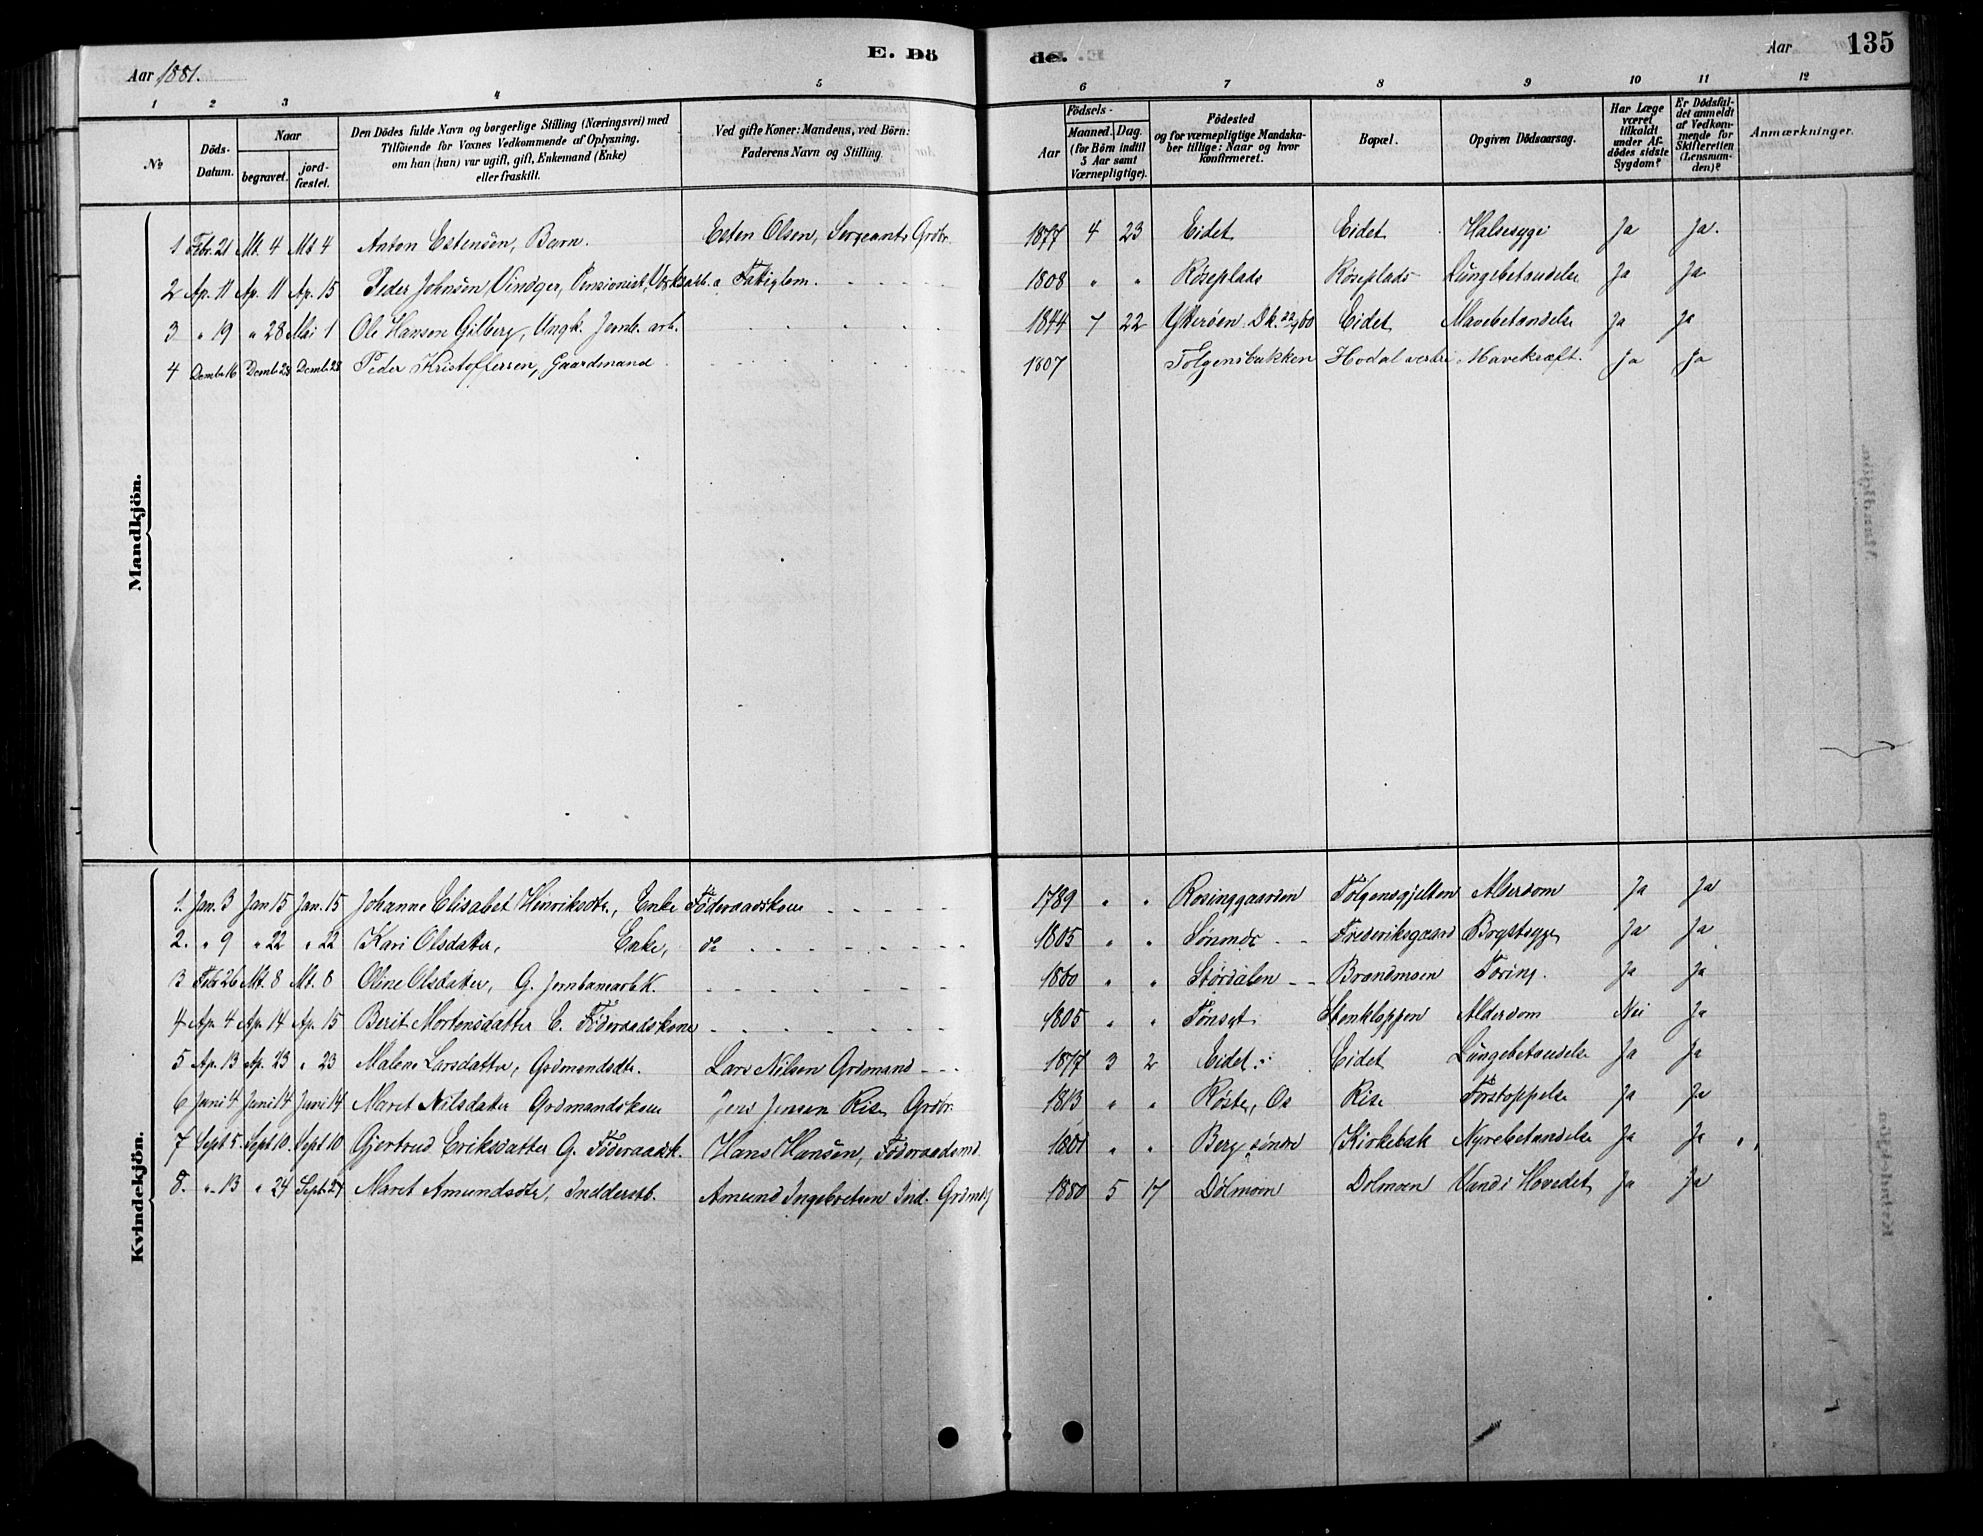 E. Dö
de.
135
Aar 1881.
Aar
1 2 3 4 5 6 7 8 9 10 11 12
No
Döds-Datum.
Naar
begravet.
jordfæstet.
Den Dödes fulde Navn og borgerlige Stilling (Næringsvei) med Tilföiende for Voxnes Vedkommende af Oplysning, om han (hun) var ugift, gift, Enkemand (Enke) eller fraskilt.
Ved gifte Koner: Mandens, ved Börn: Faderens Navn og Stilling.
Födsels-
Aar
Maaned. Dag.
(for Börn indtil 5 Aar samt Værnepligtige).
Födested og for værnepligtige Mandskaber tillige: Naar og hvor Konfirmeret.
Bopæl.
Opgiven Dödsaarsag.
Har Læge været tilkaldt under Afdödes sidste Sygdom?
Er Dödsfaldet anmeldt af Vedkommende for Skifteretten (Lensmanden)?
Anmærkninger.
Mandkjön.
1 Febr. 21 Mt. 4 Mt 4 Anton Estensen, Barn. Esten Olsen, Sergeant, Grdbr. 1877 4 23 Eidet Eidet Halsesyge Ja Ja.
2 Ap. 11 Ap. 11 Ap. 15 Peder Johnsen Vindger, Pensionist, a Fattiglem. 1808 " " Röseplads Röseplads Lungebetændelse Ja Ja
3 " 19 " 28 Mai 1 Ole Hansen Gilberg, Ungk. Jernb. arb. 1844 7 22 Ytterøen Dk. 22/9 60 Eidet Mavebetændelse Ja Ja
4 Decmbr. 16 Decmb. 28 Decmb. 28 Peder Kristoffersen, Gaardmand 1807 Tolgensbakken Hodal vestre Mavekræft. Ja Ja
Kvindekjön.
1. Jan. 3 Jan 15 Jan. 15 Johanne Elisabet Henriksdtr., Enke Föderaadskone 1789 " " Rosinggaarden Tolgensgjelten Alderdom Ja Ja
2. " 9 " 22 " 22 Kari Olsdatter, Enke, do 1805 " " Sönmör Frederiksgaard Brystsyge Ja Ja
3 Febr 26 Mt. 8 Mt. 8 Oline Olsdatter, G. Jernbanearb.K. 1860 " " Størdalen Brandmoen Tæring. Ja Ja
4 Ap. 4 Ap. 14 Ap. 15 Berit Mortensdatter E. Föderaadskone 1805 " " Tönset Stenkloppen Alderdom Nei Ja
5 Ap. 13 Ap. 23 " 23 Malene Larsdatter, Grdmandsdtr. Lars Nilsen Grdmand 1877 3 2 Eidet Eidet Lungebetændelse Ja Ja
6 Juni 4 Juni 14 Juni 14 Maret Nilsdatter Grdmandskone Jens Jensen Rise Grdbr. 1813 " " Röste, Os Rise Forstoppelse Ja Ja
7 Sept 5. Sept. 10. Sept. 10 Gjertrud Eriksdatter G. Föderaadsk. Hans Hansen, Föderaadsmd. 1801 " " Berg söndre Kirkebak Nyrebetændelse Ja Ja
8. " 13 " 24 Sept. 24 Maret Amundsdtr, Indderstb. Amund Ingebretsen Ind. Grdmd. 1880 5 17 Dölmoen Dolmoen Vand i Hovedet Ja Ja